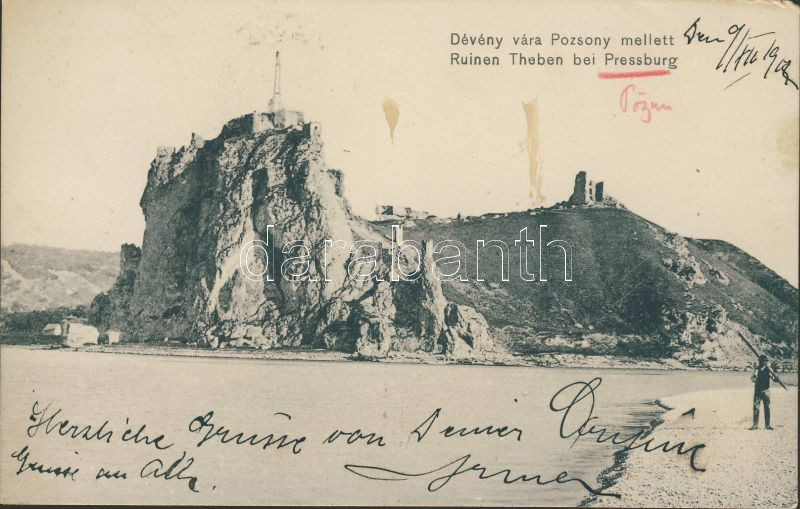 Dévény vára Pozsony mellett
Ruinen Theben bei Pressburg
Den 9/VII 190
darabanth
Herzliche Grüsse von Deiner
Grüsse an Alle.